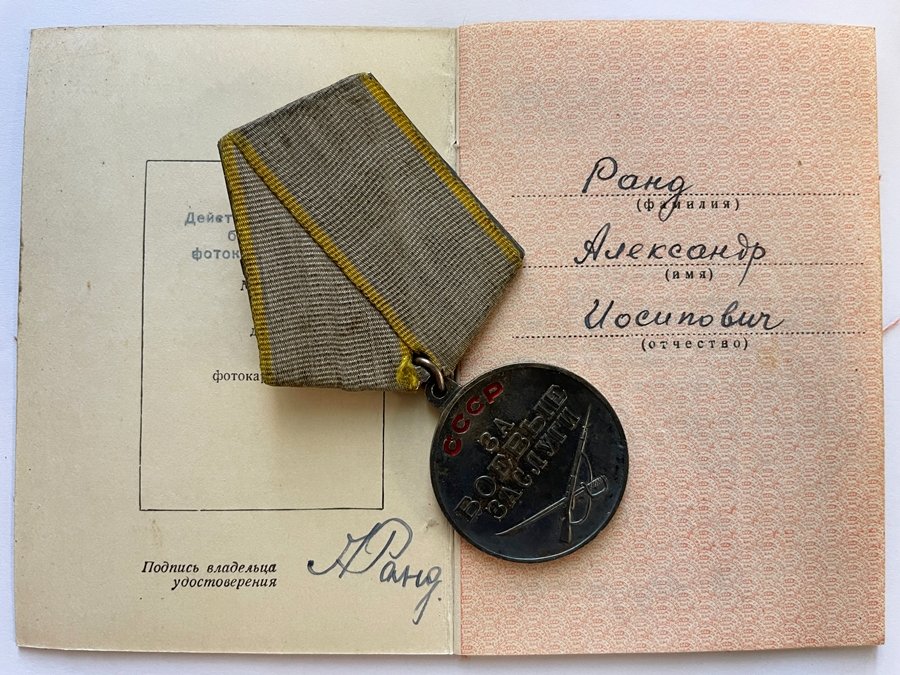 фотока
Подпись владельца
удостоверения
А Ранд.
СССР
ЗА
БОЕВЫЕ
ЗАСЛУГИ
Ранд
(фамилия)
Александр
(имя)
Иосипович
(отчество)